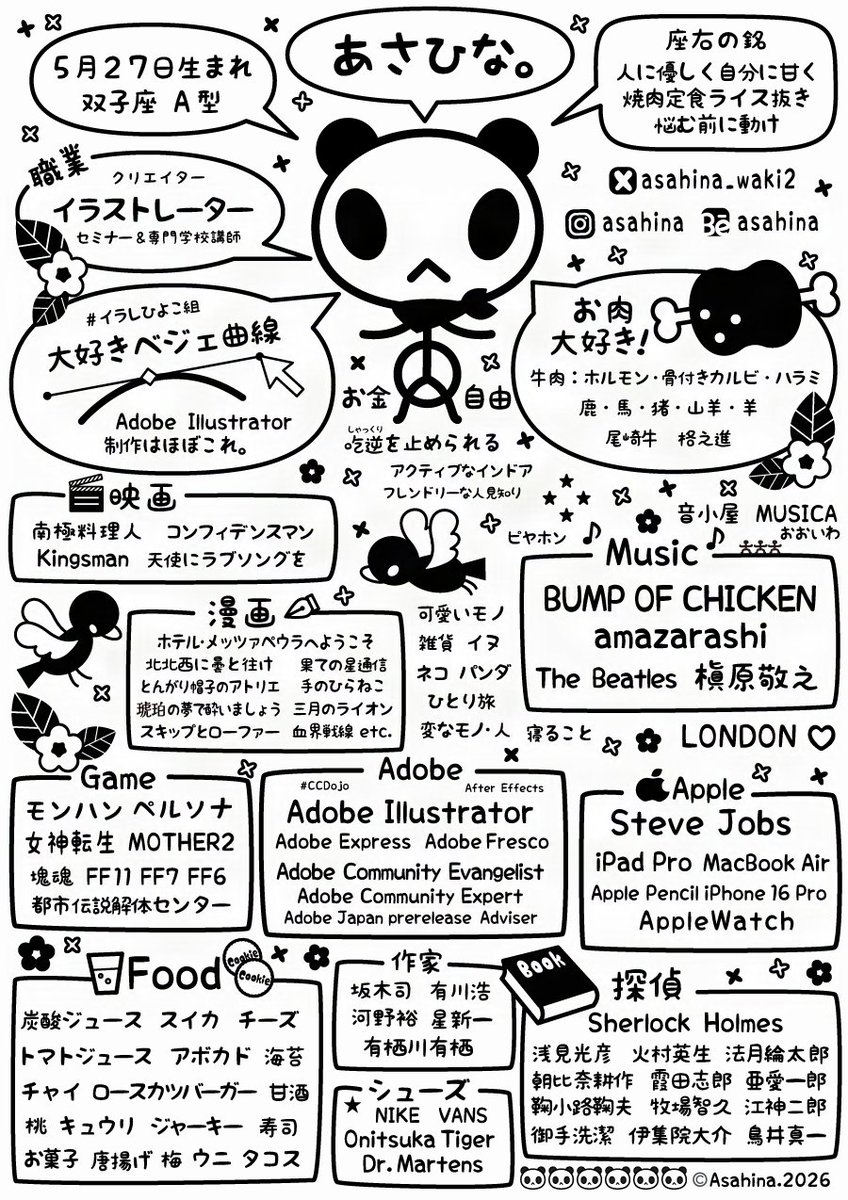 あさひな。
5月27日生まれ
双子座 A型
座右の銘
人に優しく自分に甘く
焼肉定食ライス抜き
悩む前に動け
職業
クリエイター
イラストレーター
セミナー&専門学校講師
asahina_waki2
asahina Bē asahina
#イラしひよこ組
大好きベジェ曲線
Adobe Illustrator
制作はほぼこれ。
お肉
大好き!
牛肉:ホルモン・骨付きカルビ・ハラミ
鹿・馬・猪・山羊・羊
尾崎牛 格之進
お金 自由
しゃっくり
吃逆を止められる
アクティブなインドア
フレンドリーな人見知り
映画
南極料理人 コンフィデンスマン
Kingsman 天使にラブソングを
ピヤホン
音小屋 MUSICA
おおいわ
Music
BUMP OF CHICKEN
amazarashi
The Beatles 槇原敬之
漫画
ホテル・メッツァペウラへようこそ
北北西に曇と往け 果ての星通信
とんがり帽子のアトリエ 手のひらねこ
琥珀の夢で酔いましょう 三月のライオン
スキップとローファー 血界戦線 etc.
可愛いモノ
雑貨 イヌ
ネコ パンダ
ひとり旅
変なモノ・人 寝ること
LONDON
Game
モンハン ペルソナ
女神転生 MOTHER2
塊魂 FF11 FF7 FF6
都市伝説解体センター
Adobe
#CCDojo After Effects
Adobe Illustrator
Adobe Express Adobe Fresco
Adobe Community Evangelist
Adobe Community Expert
Adobe Japan prerelease Adviser
Apple
Steve Jobs
iPad Pro MacBook Air
Apple Pencil iPhone 16 Pro
AppleWatch
Food
Cookie
Cookie
炭酸ジュース スイカ チーズ
トマトジュース アボカド 海苔
チャイ ロースカツバーガー 甘酒
桃 キュウリ ジャーキー 寿司
お菓子 唐揚げ 梅 ウニ タコス
作家
坂木司 有川浩
河野裕 星新一
有栖川有栖
シューズ
NIKE VANS
Onitsuka Tiger
Dr. Martens
Book
探偵
Sherlock Holmes
浅見光彦 火村英生 法月綸太郎
朝比奈耕作 霞田志郎 亜愛一郎
鞠小路鞠夫 牧場智久 江神二郎
御手洗潔 伊集院大介 鳥井真一
©Asahina.2026